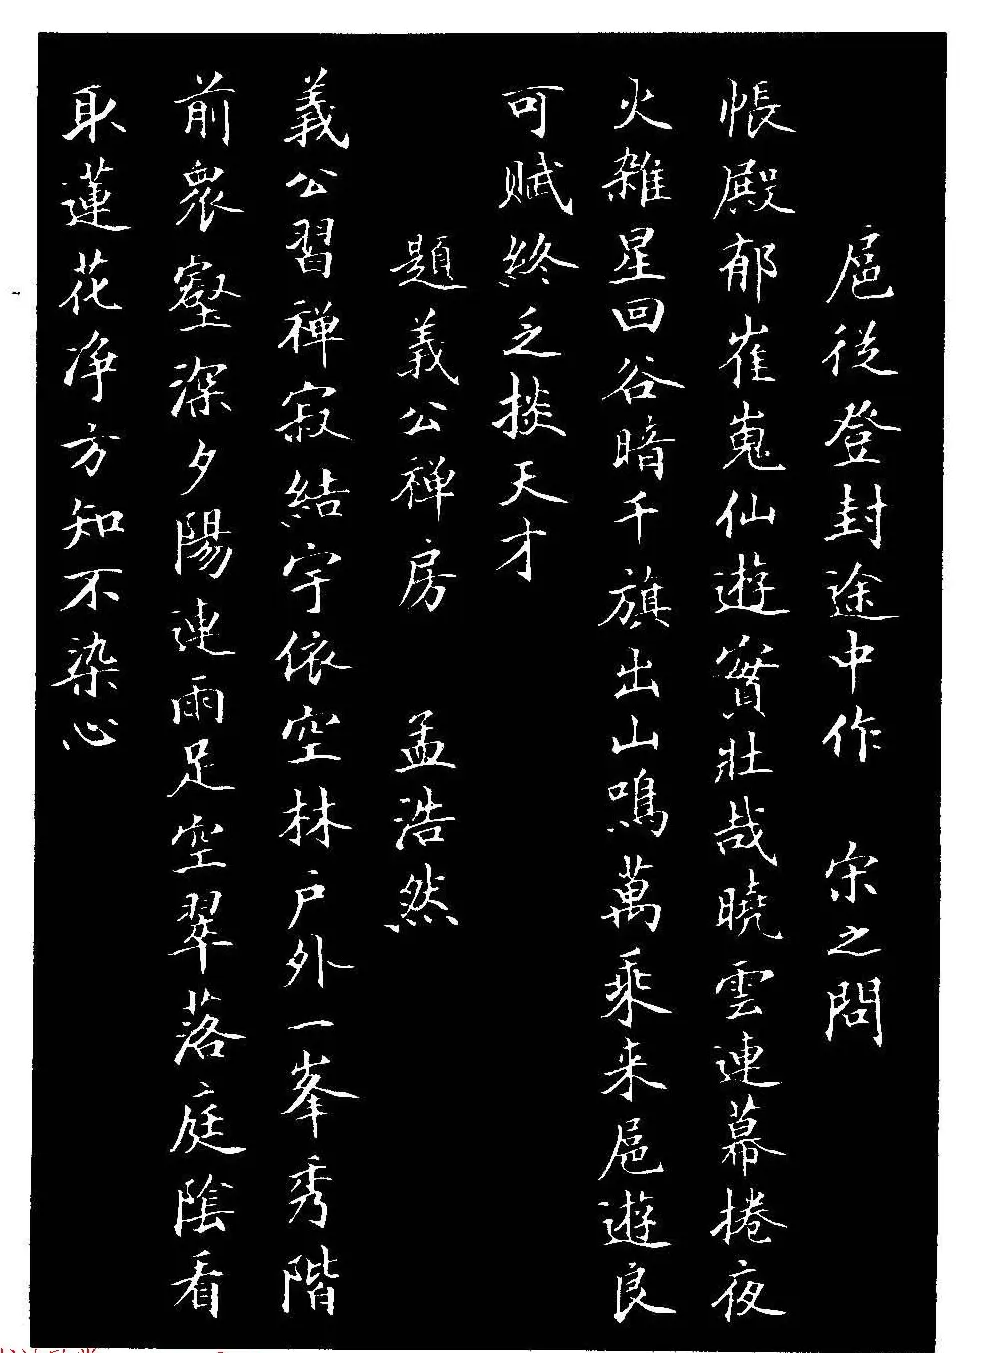 扈從登封途中作 宋之問
帳殿郁崔嵬仙遊實壯哉曉雲連幕捲夜
火雜星回谷暗千旗出山鳴萬乘来扈遊良
可赋終乏掞天才
題義公禅房 孟浩然
義公習禅寂結宇依空林户外一峯秀階
前衆壑深夕陽連雨足空翠落庭陰看
取蓮花净方知不染心